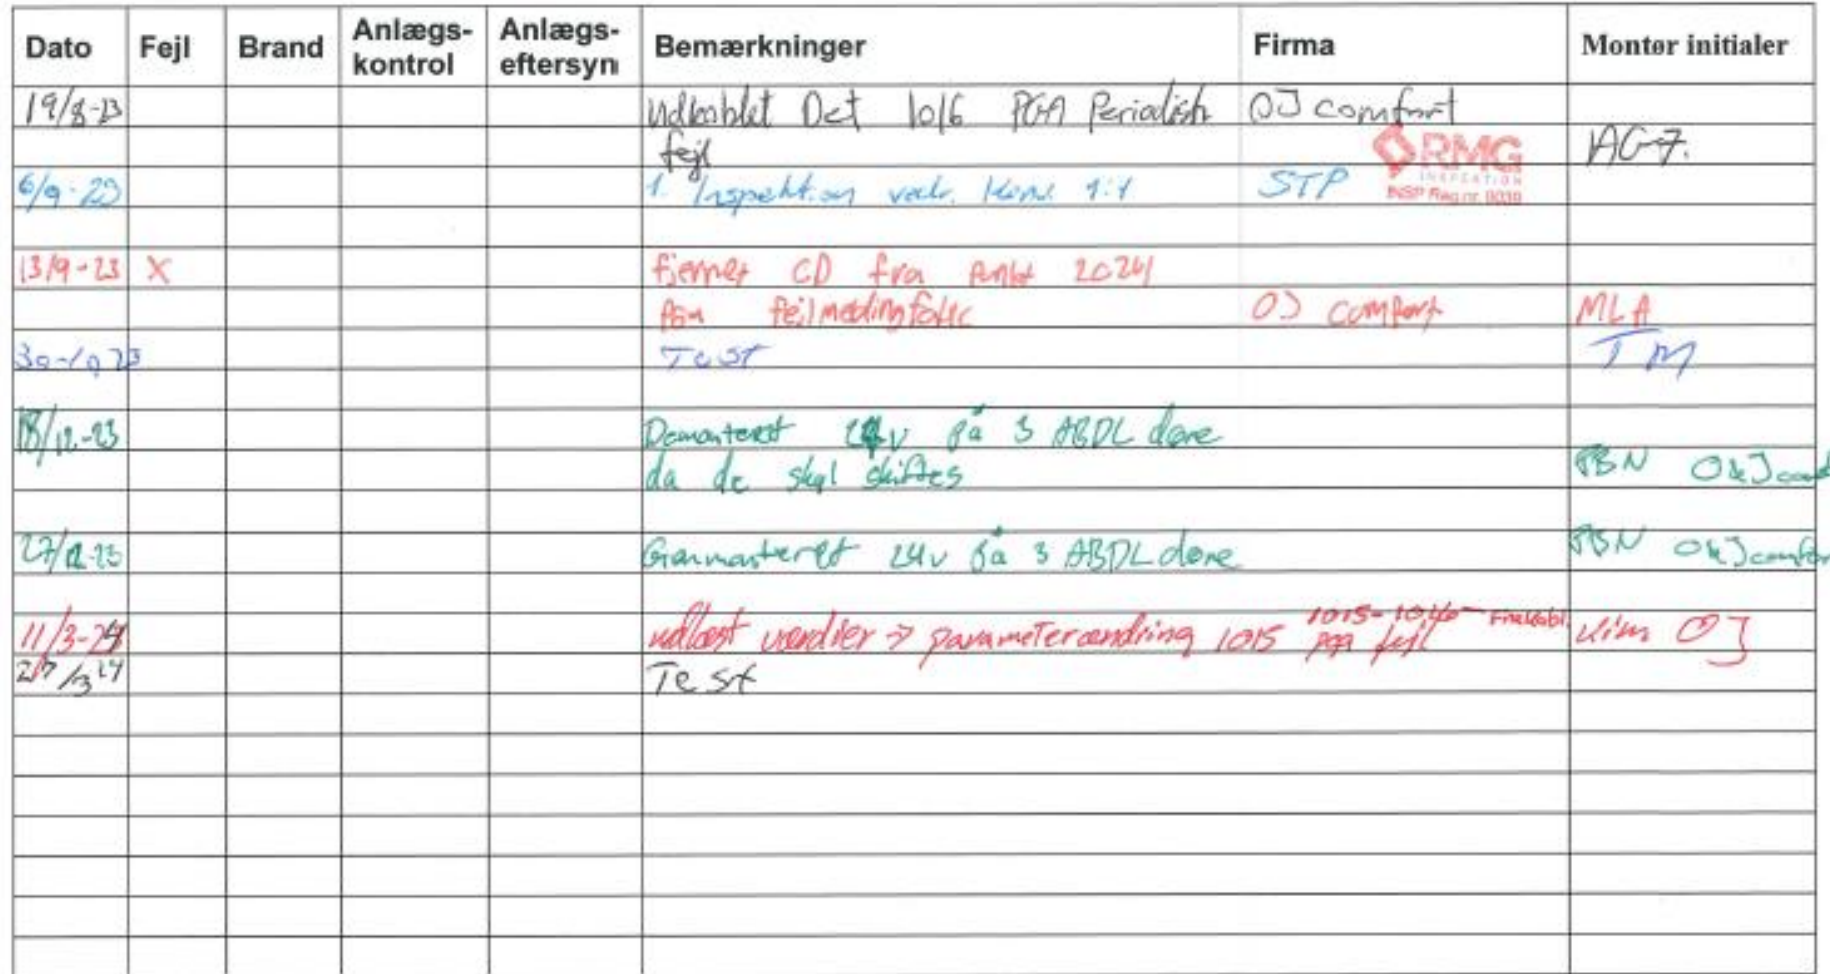 Dato Fejl Brand Anlægs-kontrol Anlægs-eftersyn Bemærkninger Firma Montør initialer
19/8-23 Udkoblet Det 1016 PGA Periodisk OJ comfort
fejl AG7.
RMG
INSPEKTION
INSP Reg.nr. 0039
6/9-23 1. Inspektion vedr. Konv. 1:1 STP
13/9-23 X fjernet CD fra punkt 2024
PGA OJ comfort MLA
30-10 23 Test TM
18/12-23 Demonteret 24v på 3 ABDL døre
da de skal skiftes PBN O&J
27/12-23 Genmonteret 24v på 3 ABDL døre PBN O&J
1015-1016
11/3-24 udlæst værdier → parameterændring 1015 pga fejl Kim OJ
27/3 24 Test